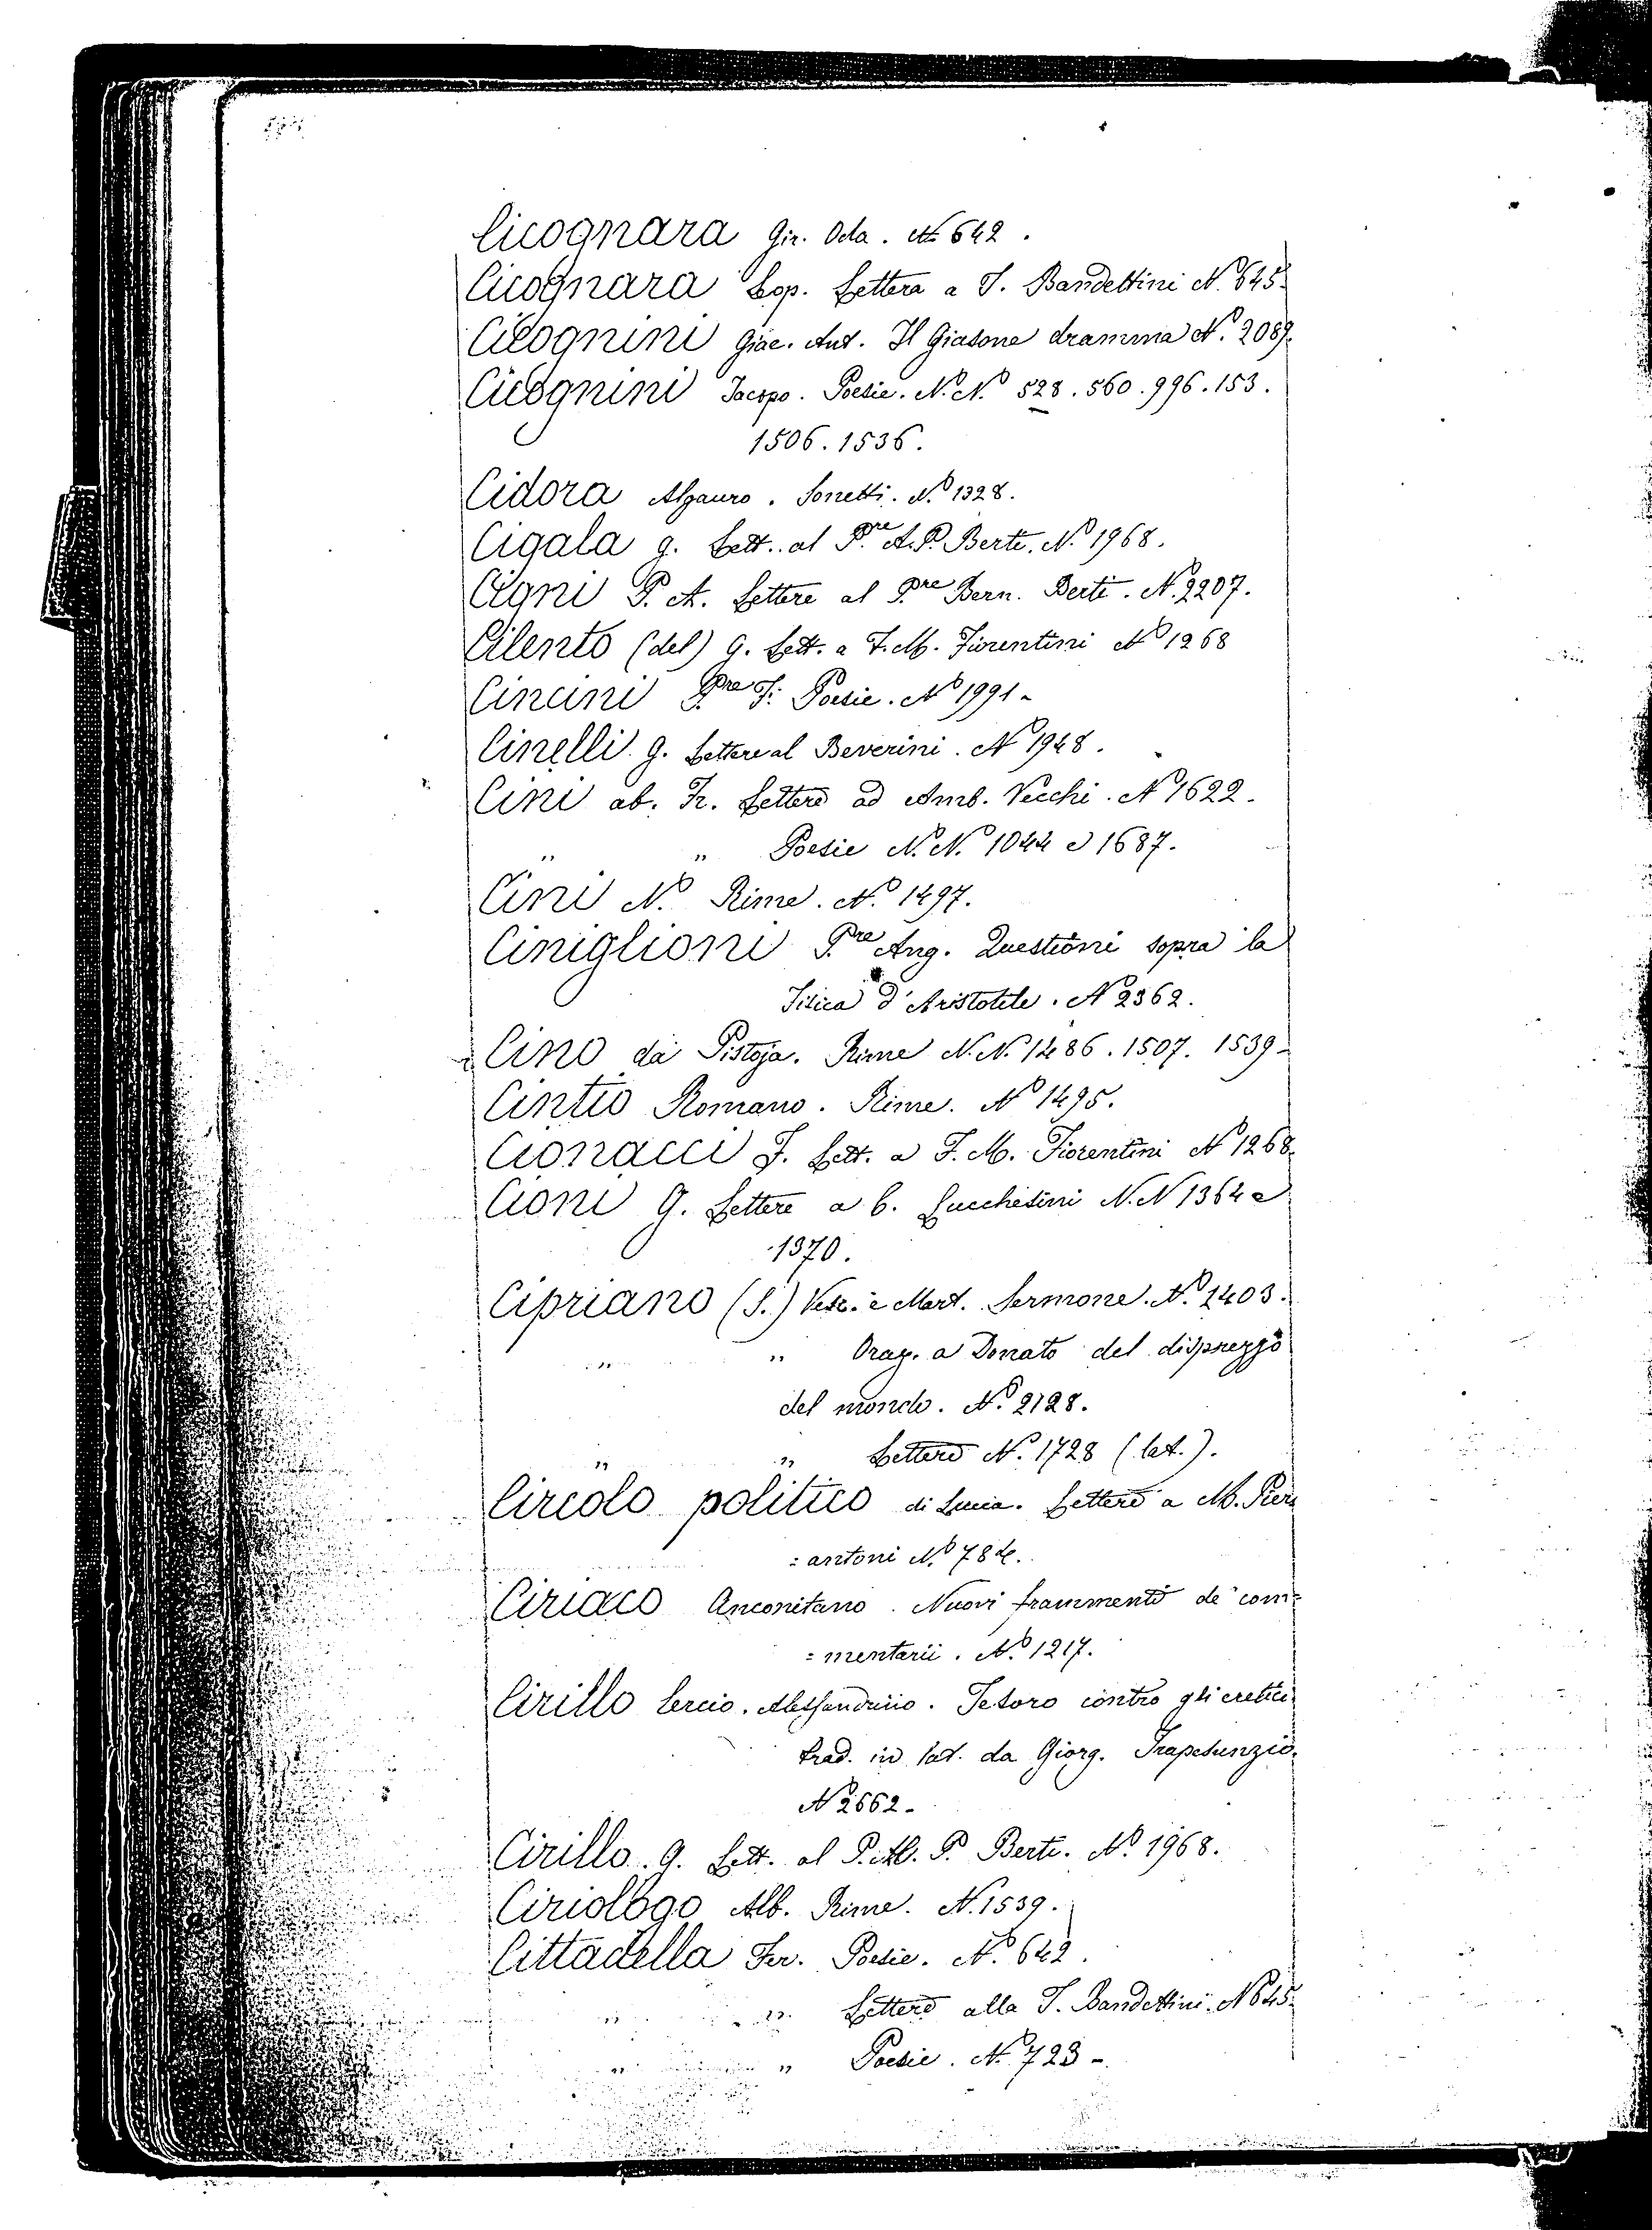 Cicognara Gir. Oda. N. 642.
Cicognara Leop. Lettera a T. Bandettini N. 645.
Cicognini Giac. Ant. Il Giasone dramma N.º 2089.
Cicognini Jacopo. Poesie. N. Nº 528. 560. 996. 153.
1506. 1536.
Cidora Algauro. Sonetti. N.º 1328.
Cigala G. Lett. al P.re A. P. Berti. Nº 1968.
Cigni P. A. Lettere al P.re Bern. Berti. N. 2207.
Cilento (del) G. Lett. a F. M. Fiorentini Nº 1268
Cincini P.re F. Poesie. Nº 1991-
Cinelli G. Lettere al Beverini. Nº 1948.
Cini ab. Fr. Lettere ad Amb. Vecchi. Nº 1622.
" " Poesie N. N. 1044 e 1687.
Cini N. Rime. Nº 1497.
Ciniglioni P.re Ang. Questioni sopra la
Fisica d'Aristotile. Nº 2362.
Cino da Pistoja. Rime N. N. 1486. 1507. 1539-
Cintio Romano. Rime. Nº 1495.
Cionacci F. Lett. a F. M. Fiorentini Nº 1268.
Cioni G. Lettere a C. Lucchesini N. N 1364 e
1370.
Cipriano (S.) Vesc. e Mart. Sermone. Nº. 1403.
" " Oraz. a Donato del disprezzo
del mondo. Nº. 2128.
" " Lettere Nº. 1728 (lat.).
Circolo politico di Lucca. Lettere a M. Pier
=antoni Nº 784.
Ciriaco Anconitano. Nuovi frammenti de' com=
=mentarii. Nº. 1217.
Cirillo Alessandrino. Tesoro contro gli eretici
trad. in lat. da Giorg. Trapesunzio.
Nº 2662-
Cirillo. G. Lett. al P. P. Berti. Nº 1968.
Ciriologo Alb. Rime. N. 1539.
Cittadella Poesie. Nº. 642.
" " Lettere alla T. Bandettini. Nº 645.
" " Poesie. Nº 723-